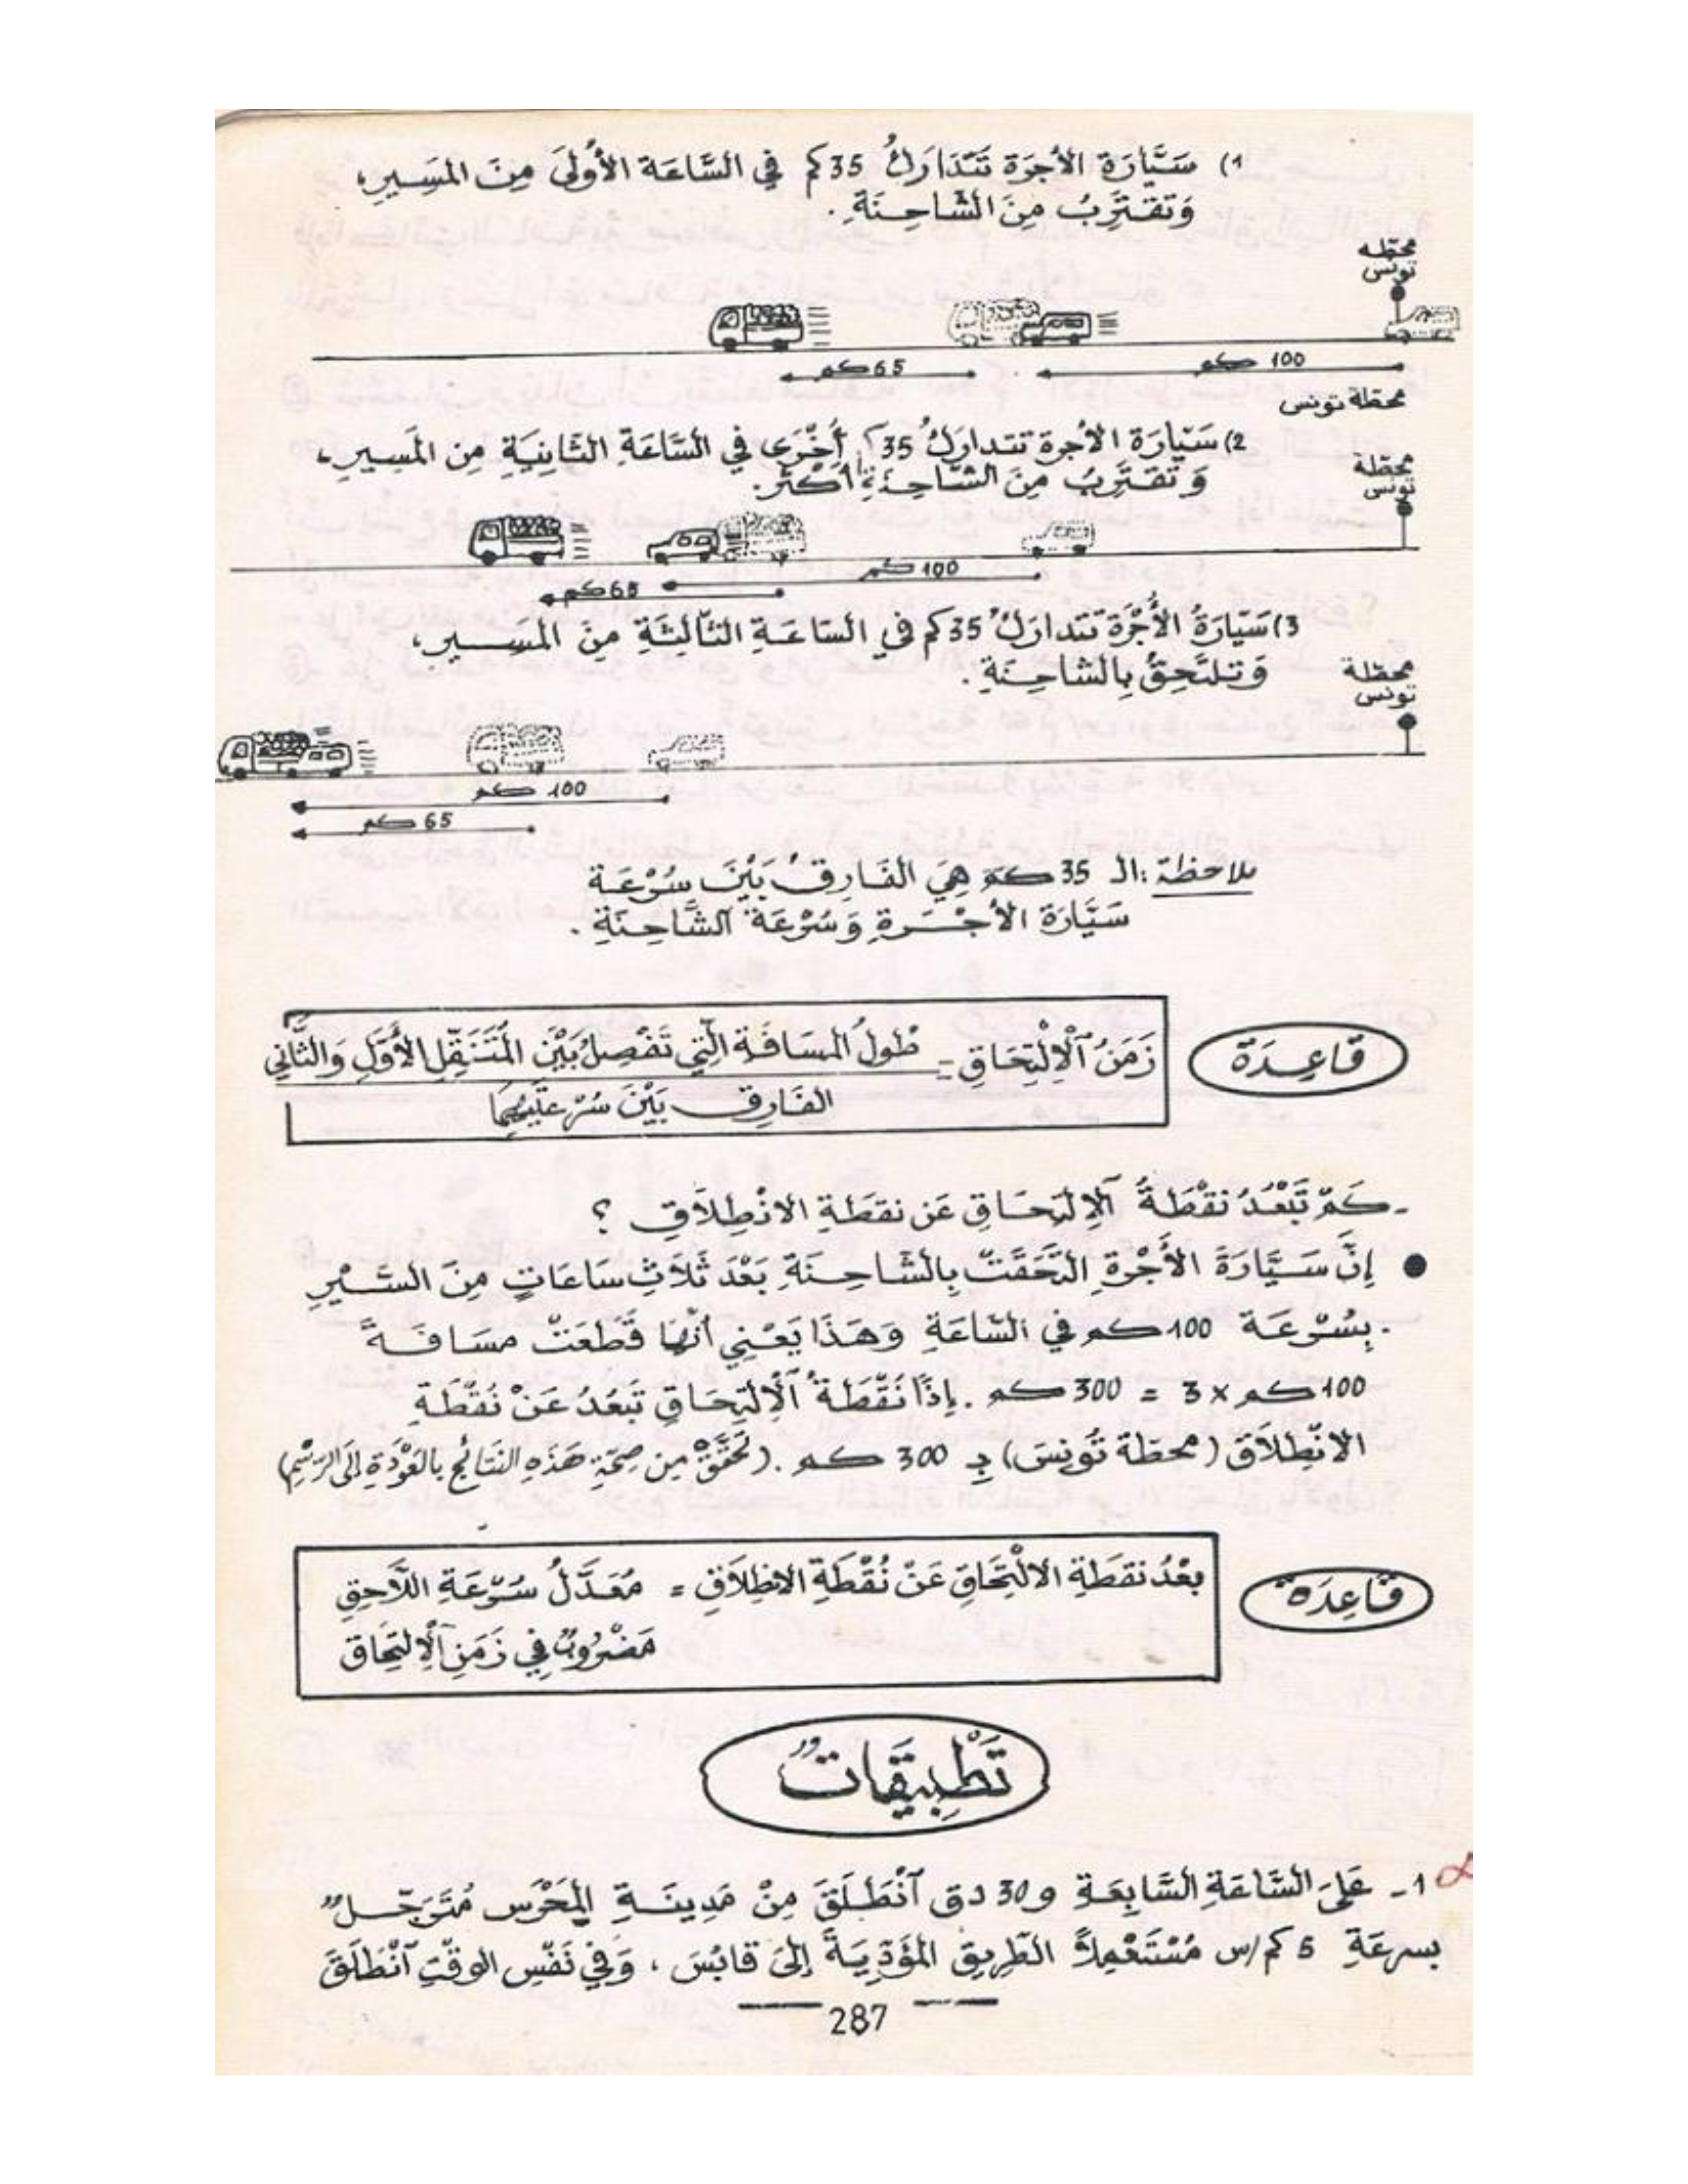 1) سَيَّارَة الأُجرَة تَتَدَارَكُ 35 كم في السَّاعَة الأُولَى مِنَ المَسِيرِ،
وَتَقتَرِبُ مِنَ الشَّاحِنَةِ.
محطّة
تونس
100 كم
65 كم
محطّة تونس
2) سَيّارَة الأجرة تتداركُ 35 كم أُخْرَى في السَّاعَةِ الثَّانِيَةِ مِن المَسِيرِ،
وَتَقتَرِبُ مِنَ الشَّاحِنَةِ أكثر.
محطّة
تونس
100 كم
65 كم
3) سَيّارَةُ الأُجْرَة تتداركُ 35 كم في السَاعَةِ الثّالِثَةِ مِنَ المَسِيرِ،
وَتلتَحِقُ بِالشاحِنَةِ.
محطّة
تونس
100 كم
65 كم
ملاحظة : الـ 35 كم هِيَ الفَارِقُ بَيْنَ سُرْعَة
سَيَّارَة الأجْرَةِ وَسُرْعَة الشَّاحِنَةِ.
قَاعِدَة
زَمَنُ ٱلْاِلْتِحَاقِ = طُولُ المسَافَة الّتِي تَفْصِلُ بَيْنَ المُتَنَقِّلِ الأوَّلِ وَالثَّانِي
الفَارِق بَيْنَ سُرْعَتَيْهِمَا
- كَمْ تَبْعُدُ نقْطَةُ ٱلاِلتِحَاقِ عَن نقطَةِ الانْطِلَاقِ ؟
● إِنَّ سَيَّارَةَ الأُجْرَةِ التَحَقَتْ بِالشَّاحِنَةِ بَعْدَ ثَلَاثِ سَاعَاتٍ مِنَ السَّيْرِ
بِسُرْعَة 100 كم في السَّاعَةِ وَهَذَا يَعْنِي أنَّهَا قَطَعَتْ مسَافَةً
100 كم × 3 = 300 كم. إِذًا نُقْطَةُ ٱلْاِلتِحَاقِ تَبعُدُ عَنْ نُقْطَةِ
الانْطِلَاق (محطّة تُونِسَ) بِـ 300 كم. (تَحَقَّقْ مِن صِحّةِ هَذِهِ النتَائِجِ بِالعَوْدَةِ إلَى الرّسْمِ)
قَاعِدَة
بعْدُ نقطَةِ الالْتِحَاقِ عَنْ نُقْطَةِ الانطِلَاقِ = مُعَدَّلُ سُرْعَةِ اللَّاحِقِ
مَضْرُوبٌ فِي زَمَنِ ٱلْاِلتِحَاق
تَطْبِيقَاتٌ
1 - عَلَى السَّاعَةِ السَّابِعَةِ و 30 دق ٱنْطَلَقَ مِنْ مَدِينَةِ المَحْرَس مُتَرَجِّلٌ
بسرعَةِ 5 كم/س مُسْتَعْمِلًا الطّرِيقَ المُؤَدِّيَةَ إِلَى قابُسَ، وَفِي نَفْسِ الوَقْتِ ٱنْطَلَقَ
287